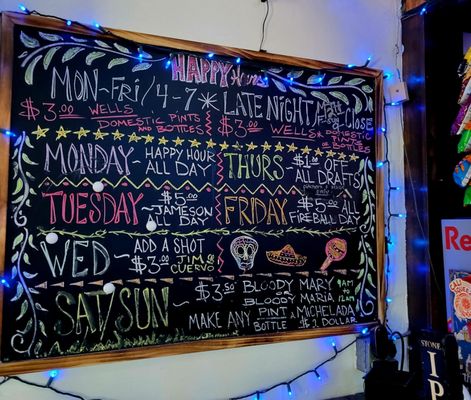 HAPPY Hour
MON-FRI / 4-7 * LATE NIGHT
$3.00 WELLS DOMESTIC PINTS AND BOTTLES
$3.00 WELLS & DOMESTIC PINTS OR BOTTLES
MONDAY - HAPPY HOUR ALL DAY
THURS - $1 OFF ALL DRAFTS
TUESDAY - $5 JAMESON ALL DAY
FRIDAY - $5.00 FIREBALL ALL DAY
WED - ADD A SHOT $3.00 JIM OR CUERVO
SAT/SUN - $3.50 BLOODY MARY BLOODY MARIA 9AM TO 12PM
MAKE ANY PINT & BOTTLE MICHELADA $2 DOLLAR
Re
STONE
IP